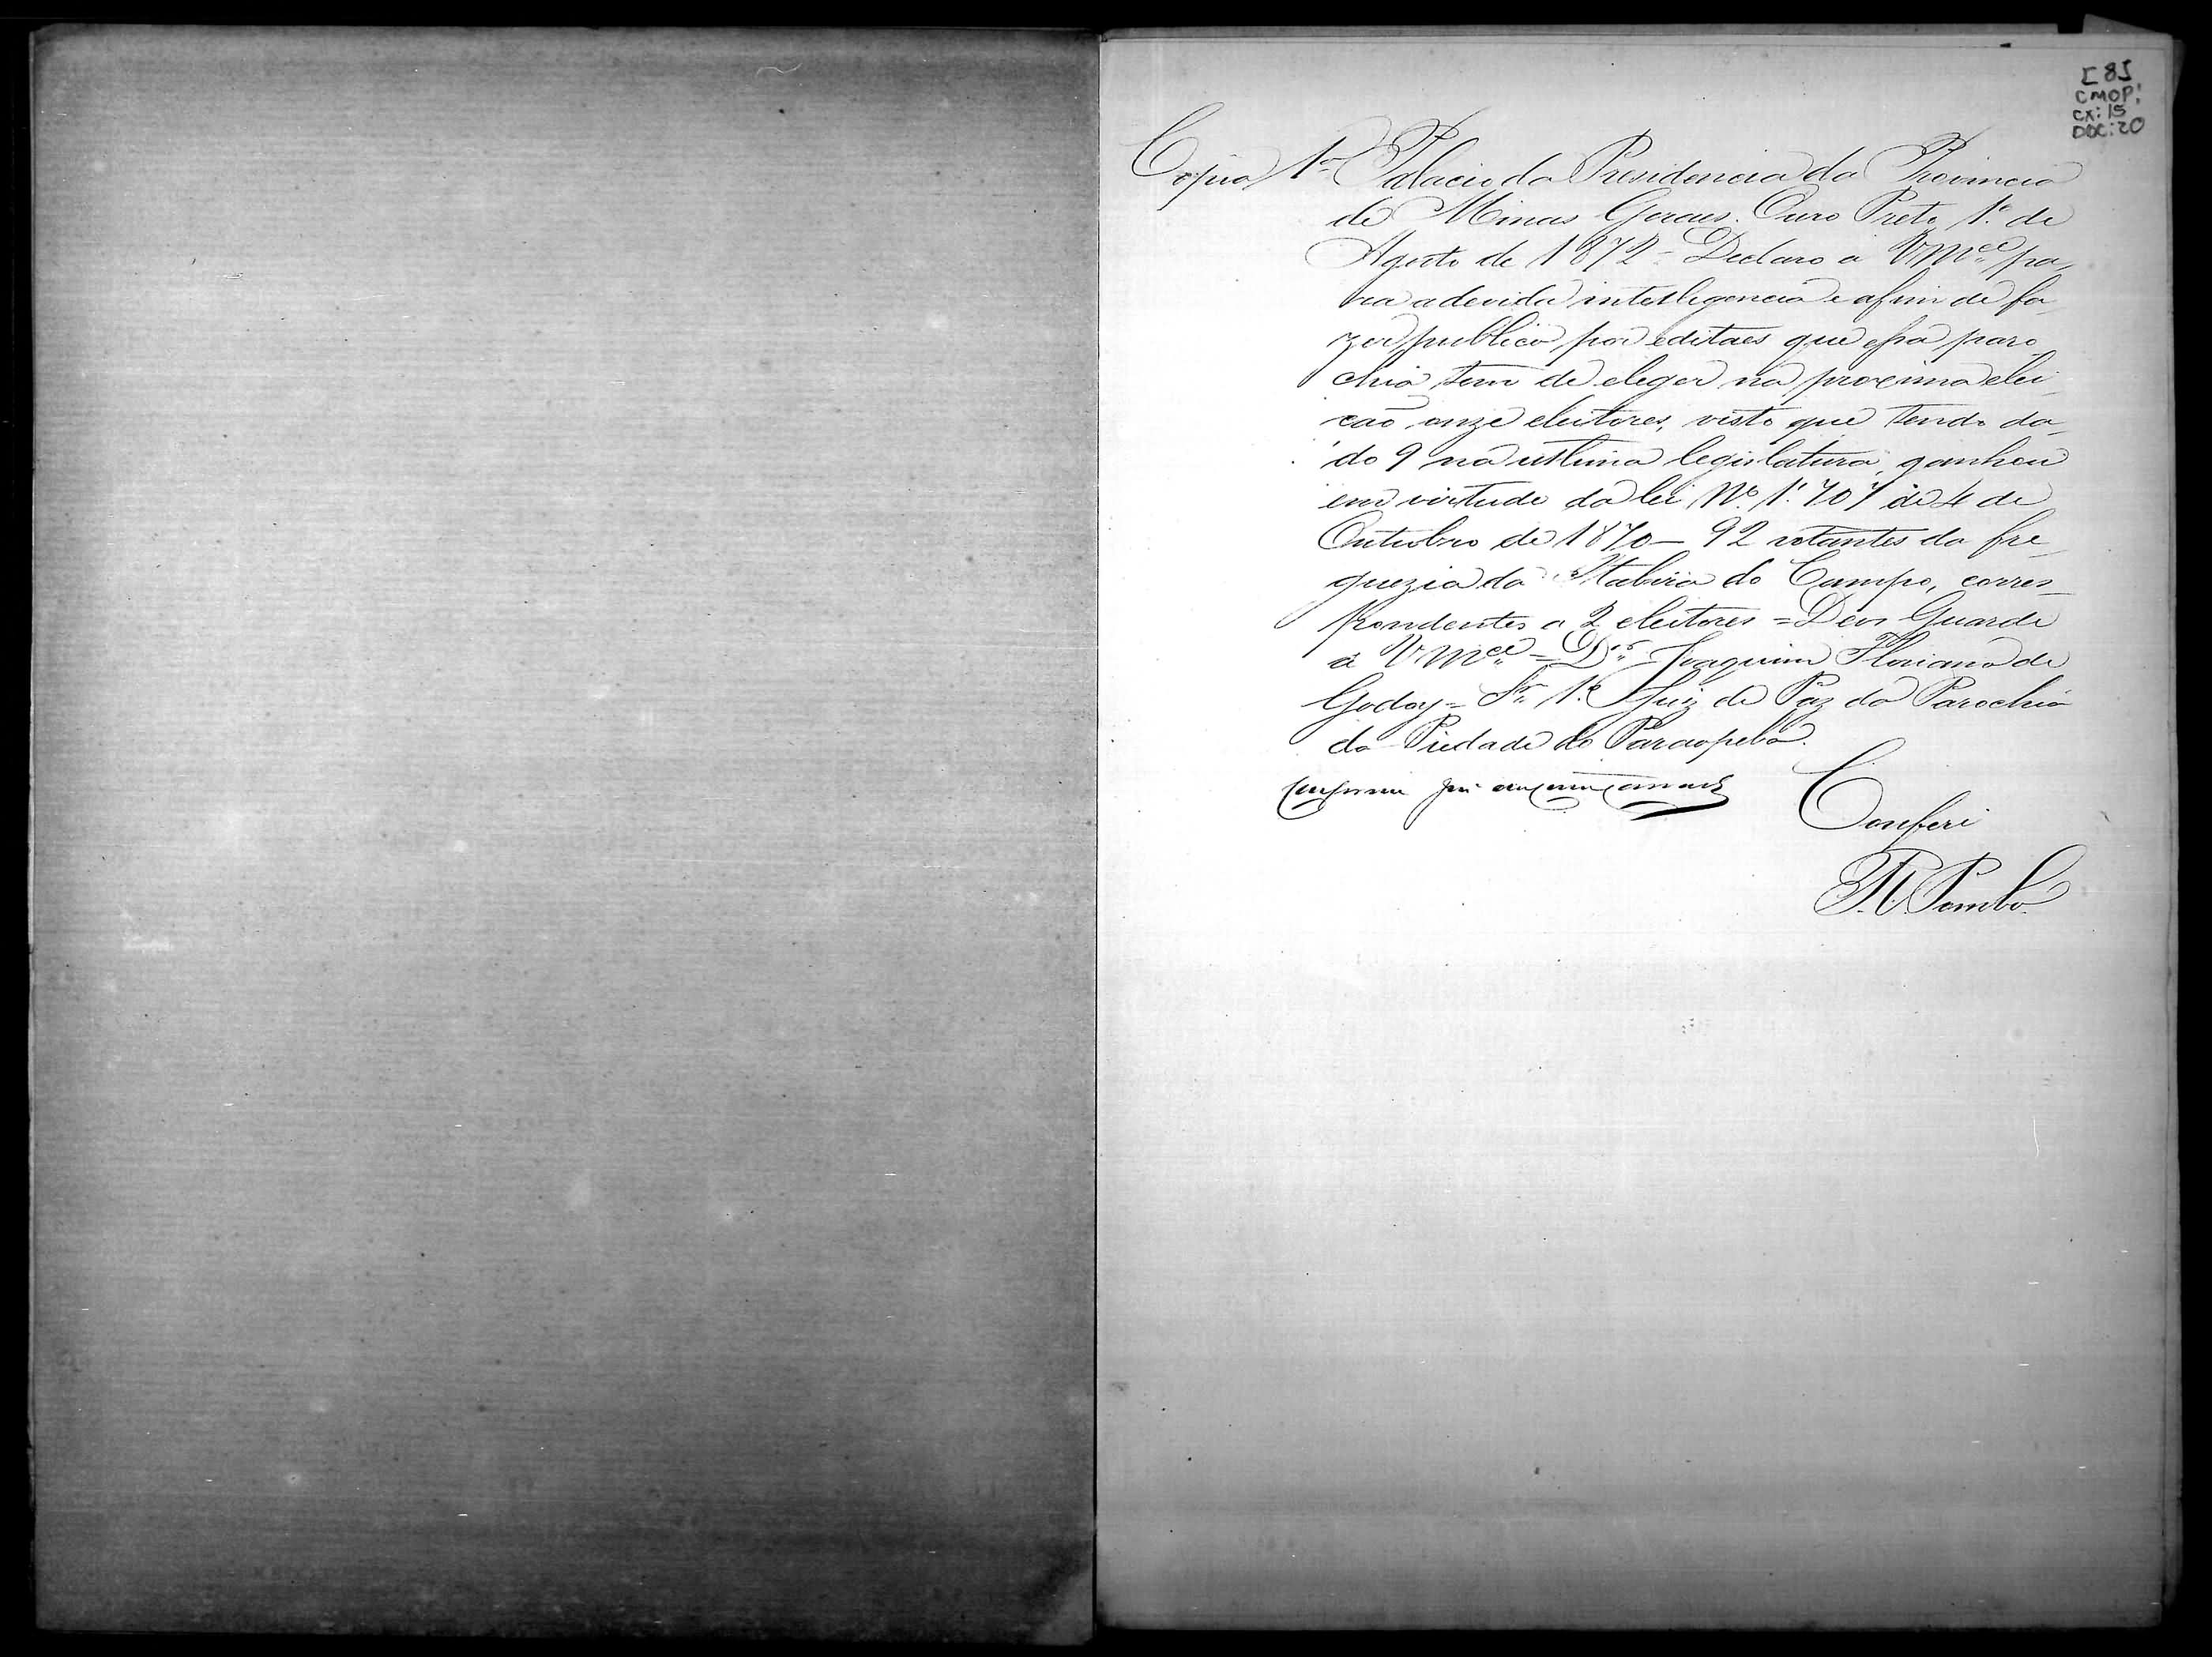 [8]
CMOP:
CX: 15
DOC: 20
Copia 1ª Palacio da Presidencia da Provincia
de Minas Geraes. Ouro Preto 1º de
Agosto de 1872 = Declaro a Vmcê pa-
ra a devida intelligencia e afim de fa-
zer publico por editaes que essa paro-
chia tem de eleger na proxima elei-
ção onze eleitores, visto que tendo da-
do 9 na ultima legislatura, ganhou
em virtude da lei Nº 1.707 de 4 de
Outubro de 1870 — 92 votantes da fre-
guezia da Itabira do Campo, corres-
pondentes a 2 eleitores = Deos Guarde
a Vmcê = Dr. Joaquim Floriano de
Godoy = Sr. 1º Juiz de Paz da Parochia
da Piedade do Paraopeba.
Conforme
Conferi
Pombo